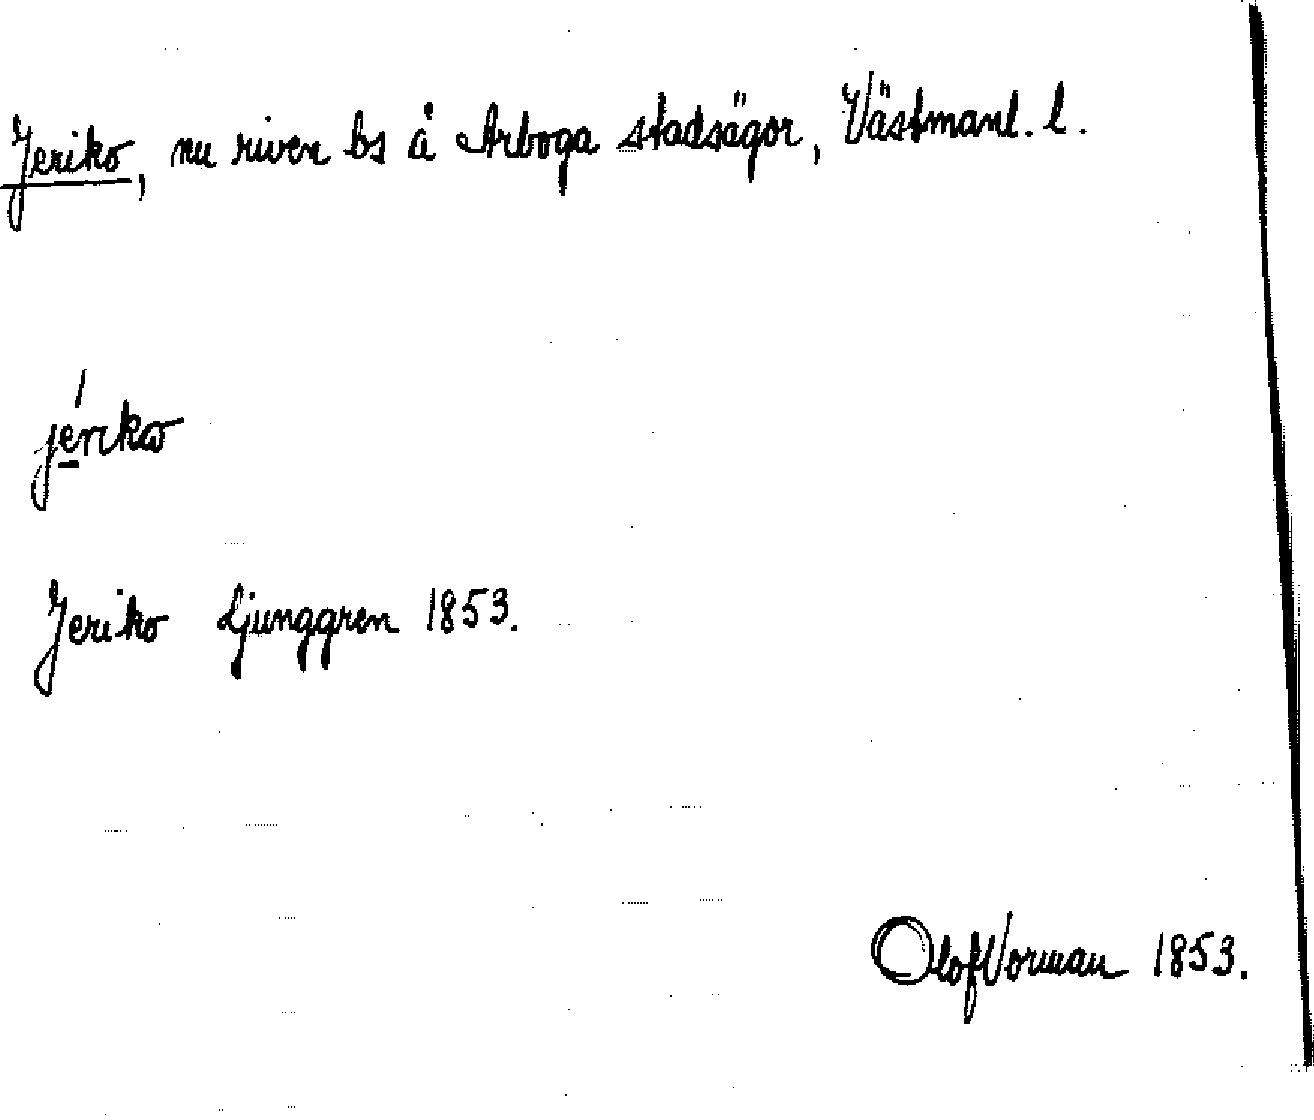 Jeriko, nu riven bs å Arboga stadsägor, Västmanl. l.
jérikω
Jeriko Ljunggren 1853.
Olof Vorman 1853.